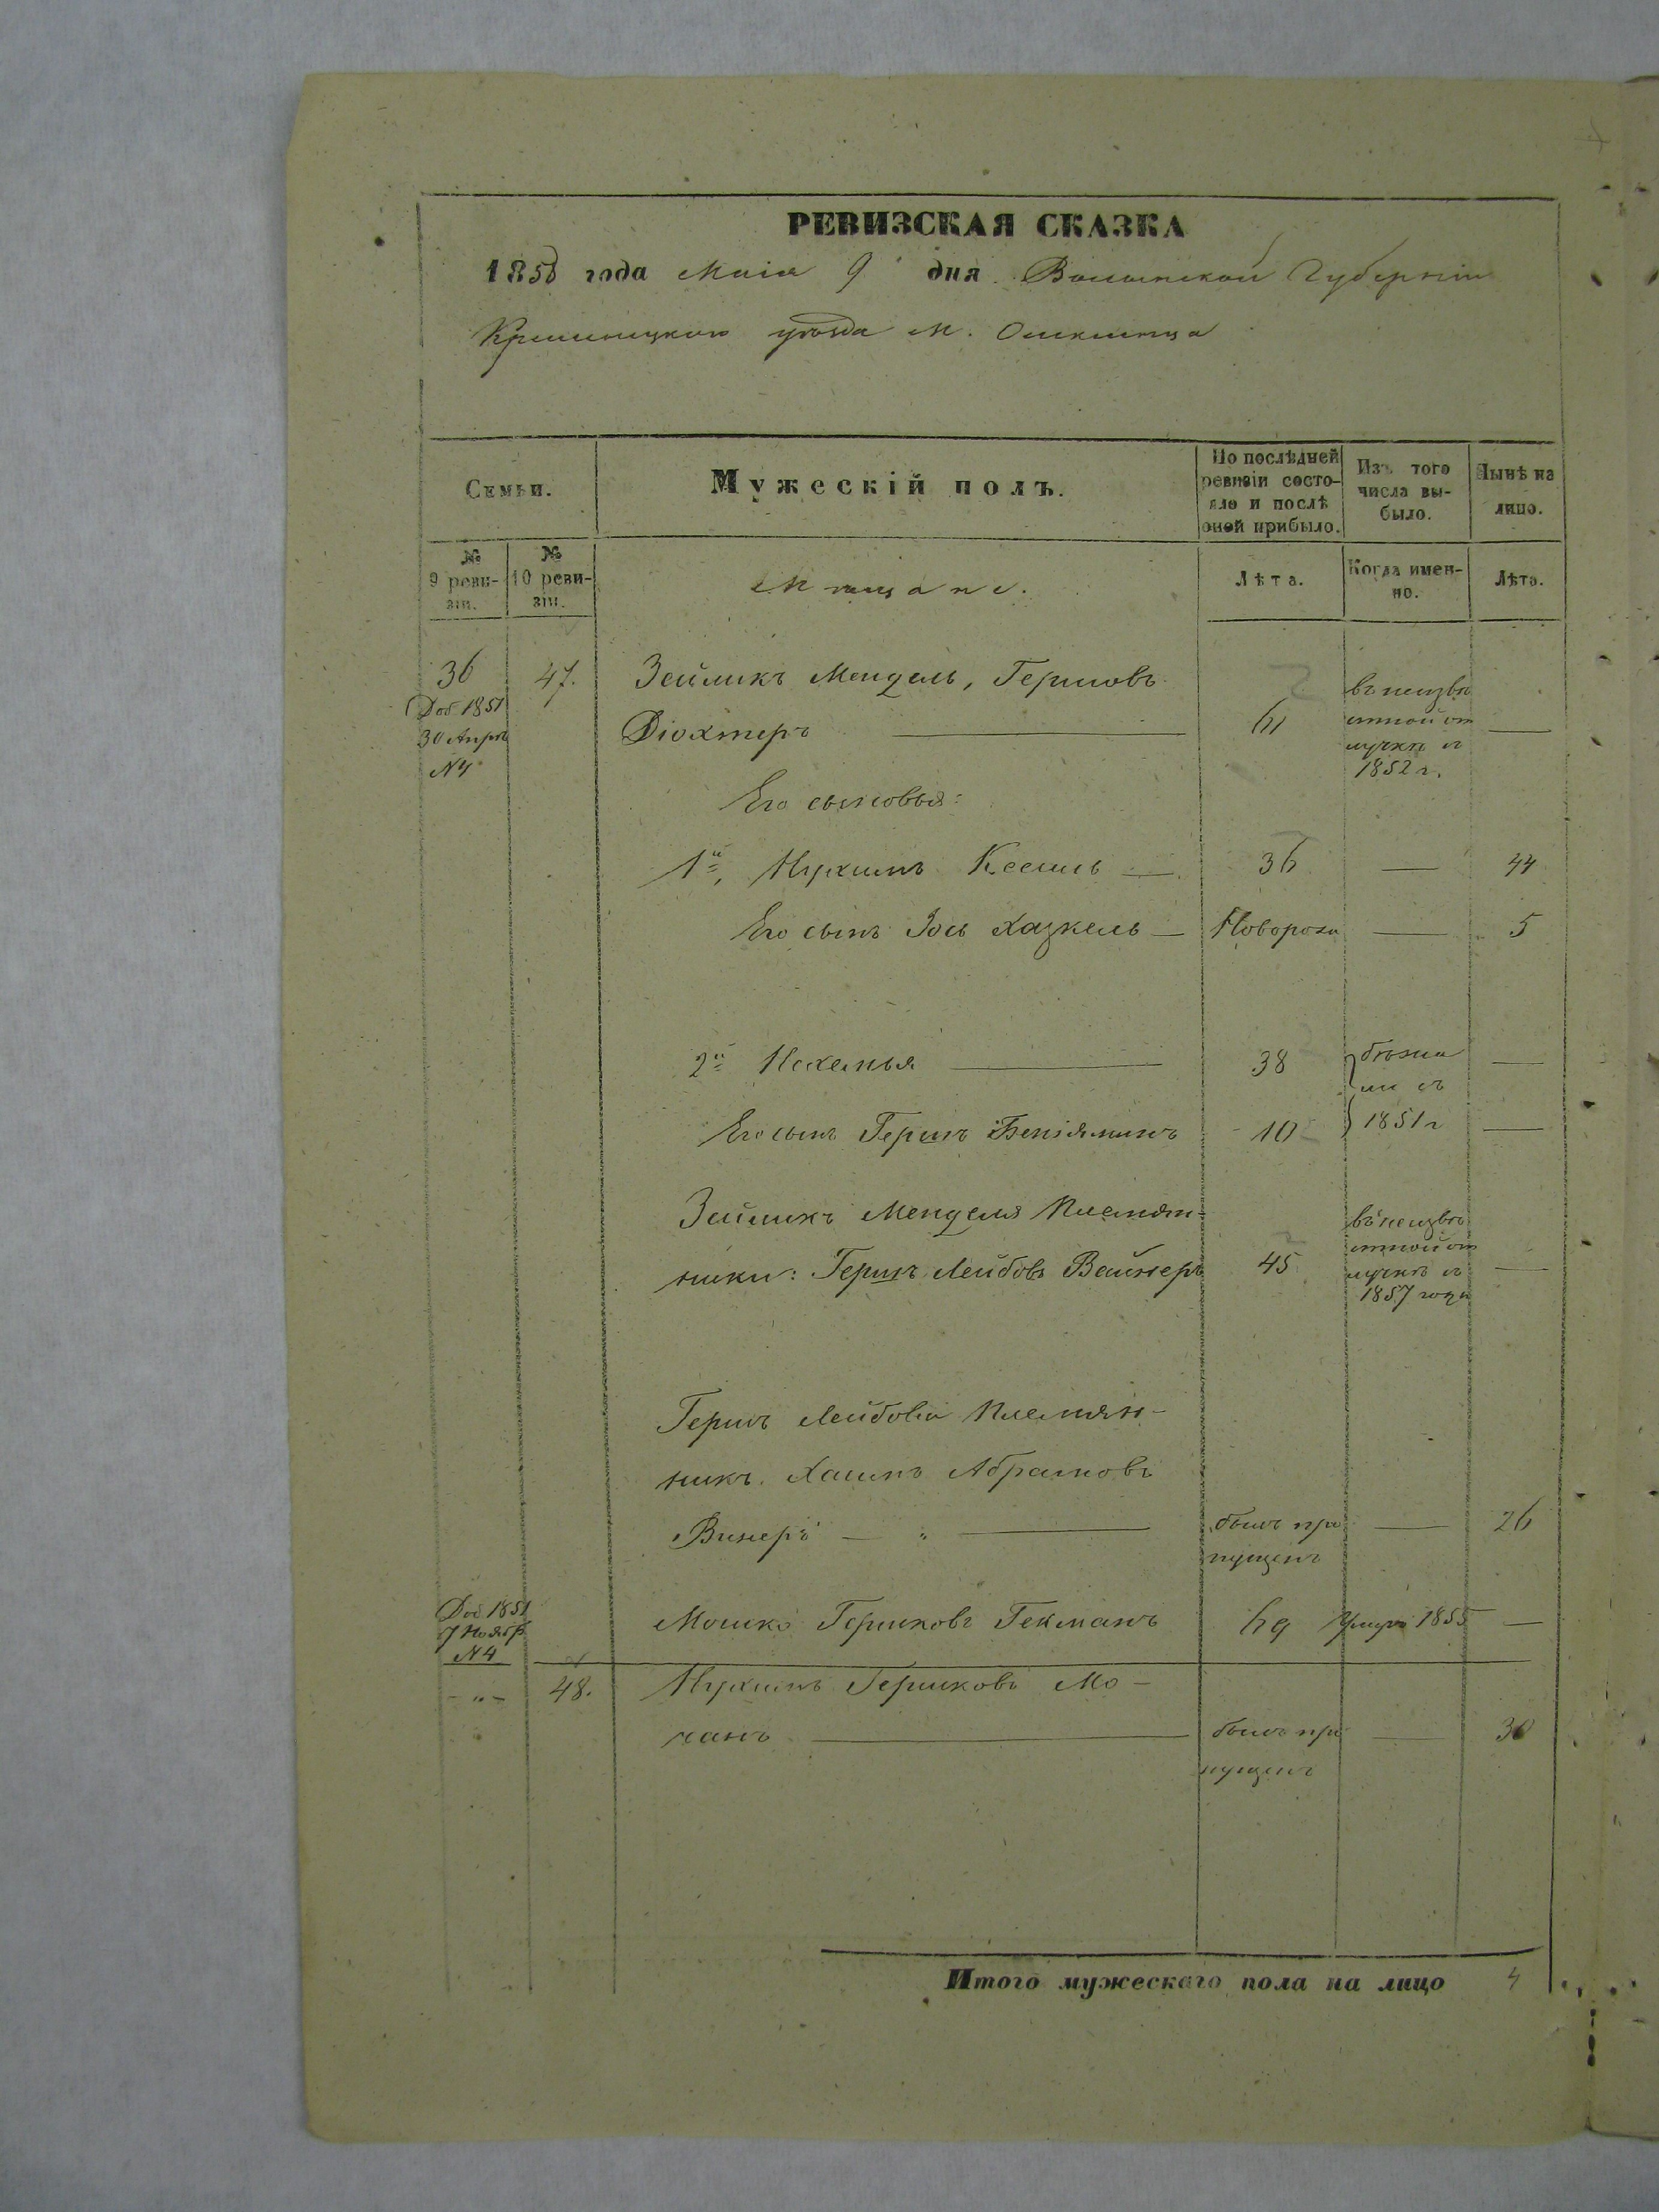 РЕВИЗСКАЯ СКАЗКА
1858 года Маія 9 дня Волынской Губерніи
Кременецкого уѣзда м.
Семьи.
Мужескій полъ.
По послѣдней ревизіи состояло и послѣ оной прибыло.
Изъ того числа вы-было.
Нынѣ на лицо.
№ 9 реви-зіи.
№ 10 реви-зіи.
Мѣщане.
Лѣта.
Когда имен-но.
Лѣта.
36 47. Зейликъ Мендель, Гершовъ
Доб 1851
30 Апрѣ
№4
Діохтеръ — 61 въ неизвѣ
стной от
лучкѣ съ
1852 г. —
Его сыновья:
1й, Нухимъ Кесиль — 36 — 44
Его сынъ Іось Хаскель — Новорож — 5
2й Нехемья — 38 бѣжа
ли въ —
Его сынъ Гершъ Беніяминъ 10 1851 г —
Зейликъ Менделя Племян-
ники: Гершъ Лейбовъ Вайнеръ 45 въ неизвѣ
стной от
лучкѣ съ
1857 года —
Гершъ Лейбова Племян-
никъ. Хаимъ Абрамовъ
Винеръ — былъ про
пущенъ — 26
Доб 1851
7 Ноябр
№4
Мошко Гершковъ Гекманъ 69 Умеръ 1855 —
- " - 48. Нухимъ Гершковъ Мо-
чанъ — былъ про
пущенъ — 30
Итого мужескаго пола на лицо 4